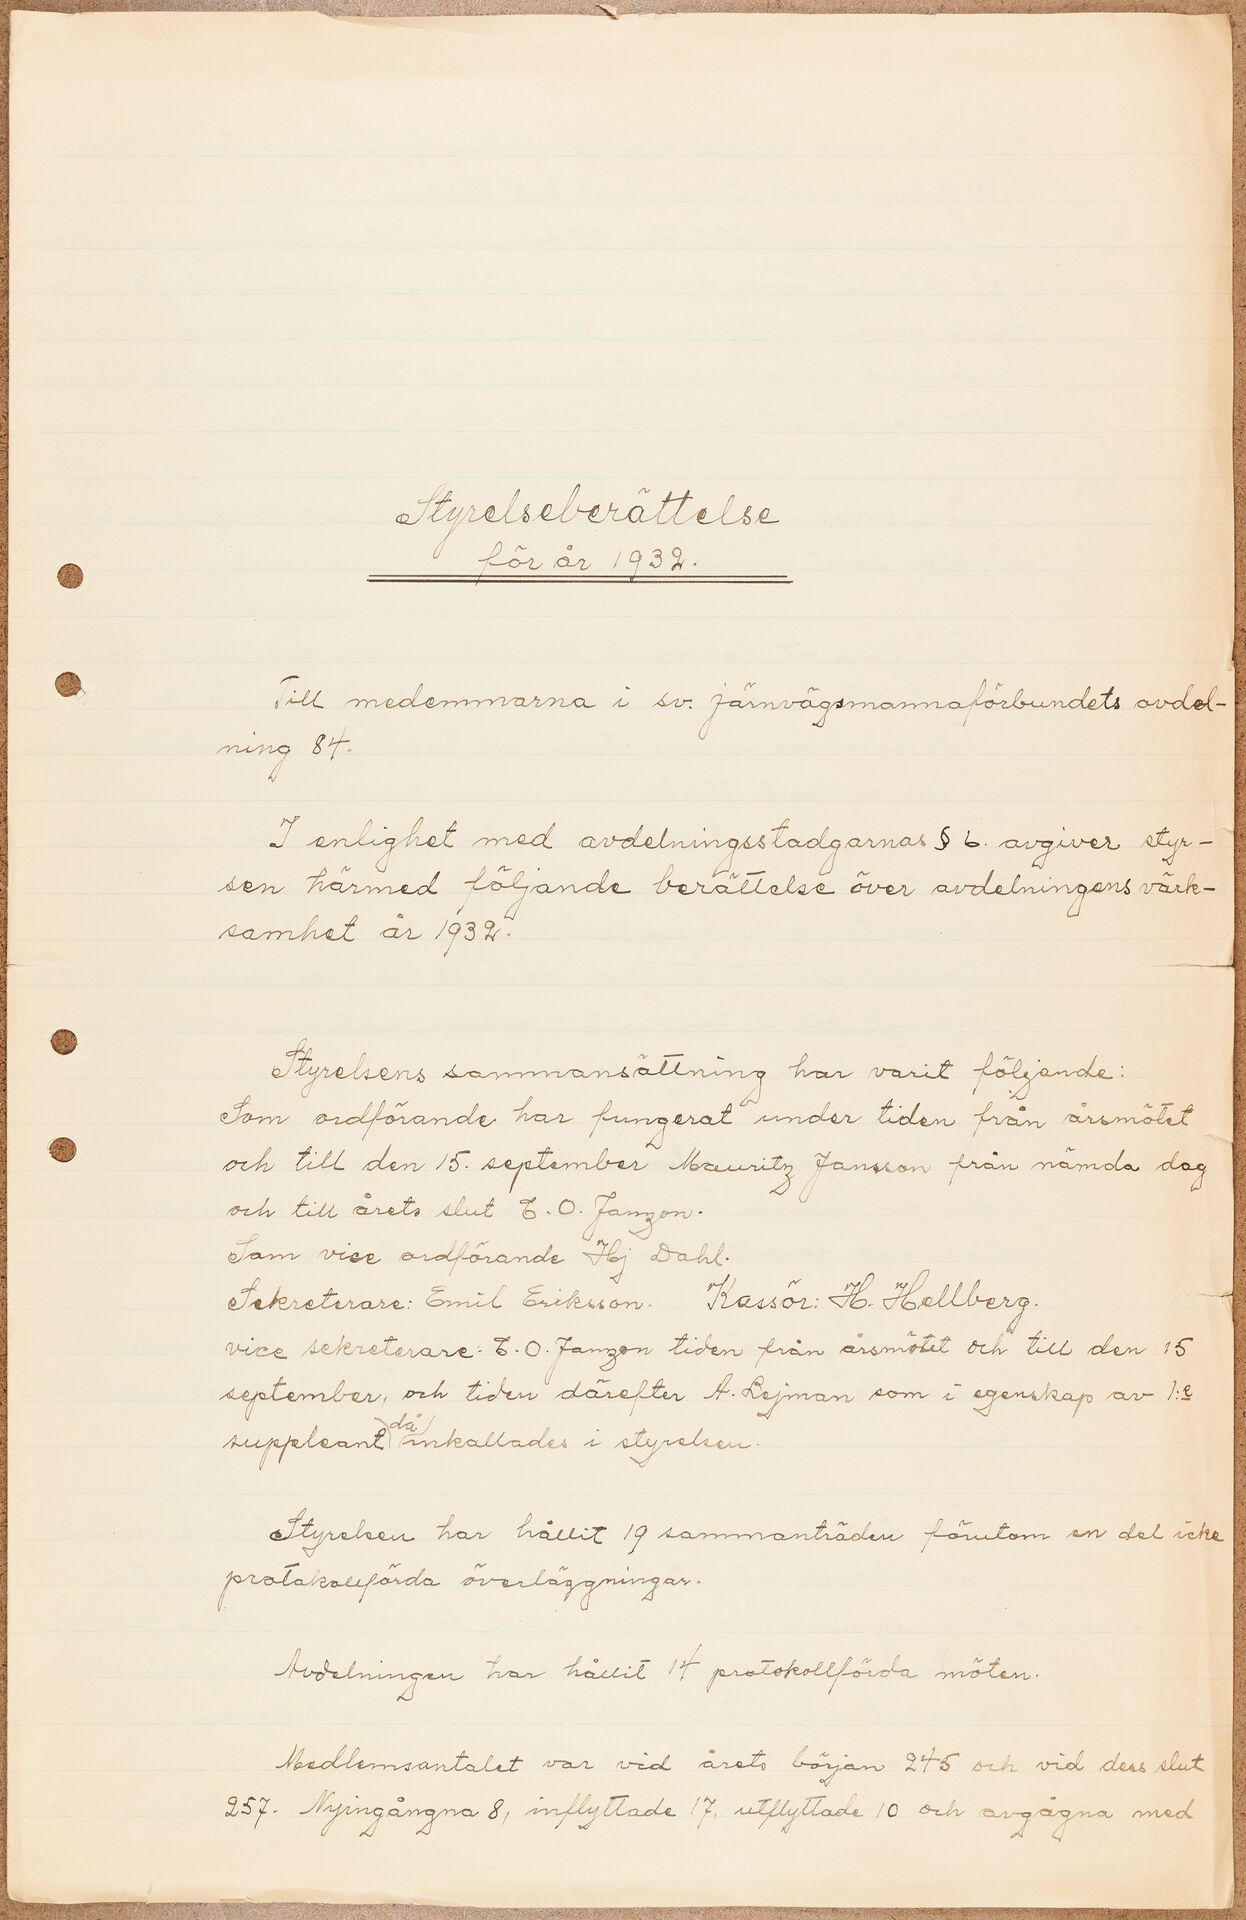 Styrelseberättelse
för år 1932.
Till medemmarna i sv. järnvägsmannaförbundets avdel-
ning 84.
I enlighet med avdelningsstadgarnas § 6. avgiver styr-
sen härmed följande berättelse över avdelningens värk-
samhet år 1932.
Styrelsens sammansättning har varit följande:
Som ordförande har fungerat under tiden från årsmötet
och till den 15. september Mauritz Jansson från nämda dag
och till årets slut E. O. Janzon.
Som vice ordförande Hj Dahl.
Sekreterare: Emil Eriksson. Kassör: H. Hellberg.
vice sekreterare: E. O. Janzon tiden från årsmötet och till den 15
september, och tiden därefter A. Lejman som i egenskap av 1:e
suppleant då inkallades i styrelsen.
Styrelsen har hållit 19 sammanträden förutom en del icke
protokollförda överläggningar.
Avdelningen har hållit 14 protokollförda möten.
Medlemsantalet var vid årets början 245 och vid dess slut
257. Nyingångna 8, inflyttade 17, utflyttade 10 och avgågna med